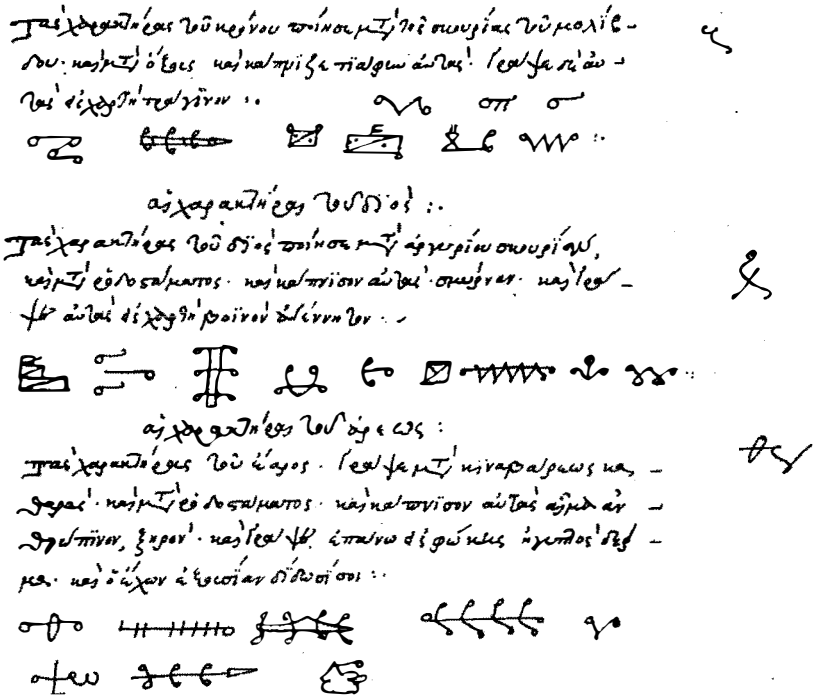 Τὰς χαρακτήρας τοῦ κρόνου ποίησε μετὰ τῆς σκουρίας τοῦ μολίβ-
δου· καὶ μετὰ ὄξους καὶ κάπνιζε τιάφιν αὐτάς· Γράψε δὲ αὐ-
τὰς εἰς χαρτὴ τραγίνον :·
αἱ χαρακτήρες τοῦ διός :·
Τὰς χαρακτήρας τοῦ διὸς ποίησε μετὰ ἀργυρίου σκουρίαν,
καὶ μετὰ ῥοδοστάματος· καὶ κάπνισον αὐτάς· σμύρναν· καὶ γρά-
ψε αὐτὰς εἰς χαρτὴ βοϊνὸν ἀγέννητον·
αἱ χαρακτήρες τοῦ ἄρεως :
Τὰς χαρακτήρας τοῦ ἄρεος· Γράψε μετὰ κιναβάρεως κα-
θαρᾶς· καὶ μετὰ ῥοδοστάματος· καὶ κάπνισον αὐτὰς αἷμα ἀν-
θρώπινον, ξηρόν· καὶ γράψε ἐπάνω εἰς φώκιας δέρ-
μα· καὶ ὁ ἔχων ἐξουσίαν δίδωσί σοι :·